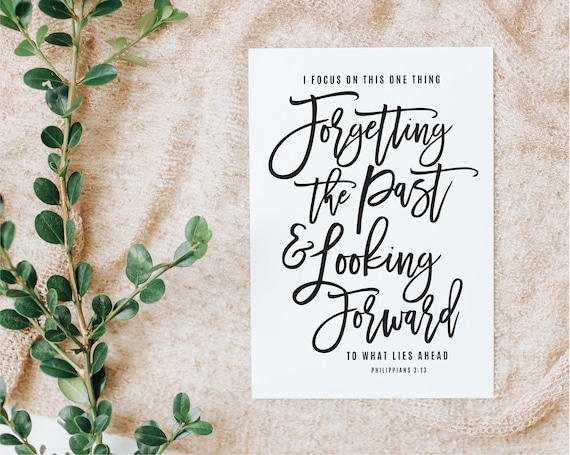 I FOCUS ON THIS ONE THING
Forgetting
the Past
& Looking
Forward
TO WHAT LIES AHEAD
PHILIPPIANS 3:13